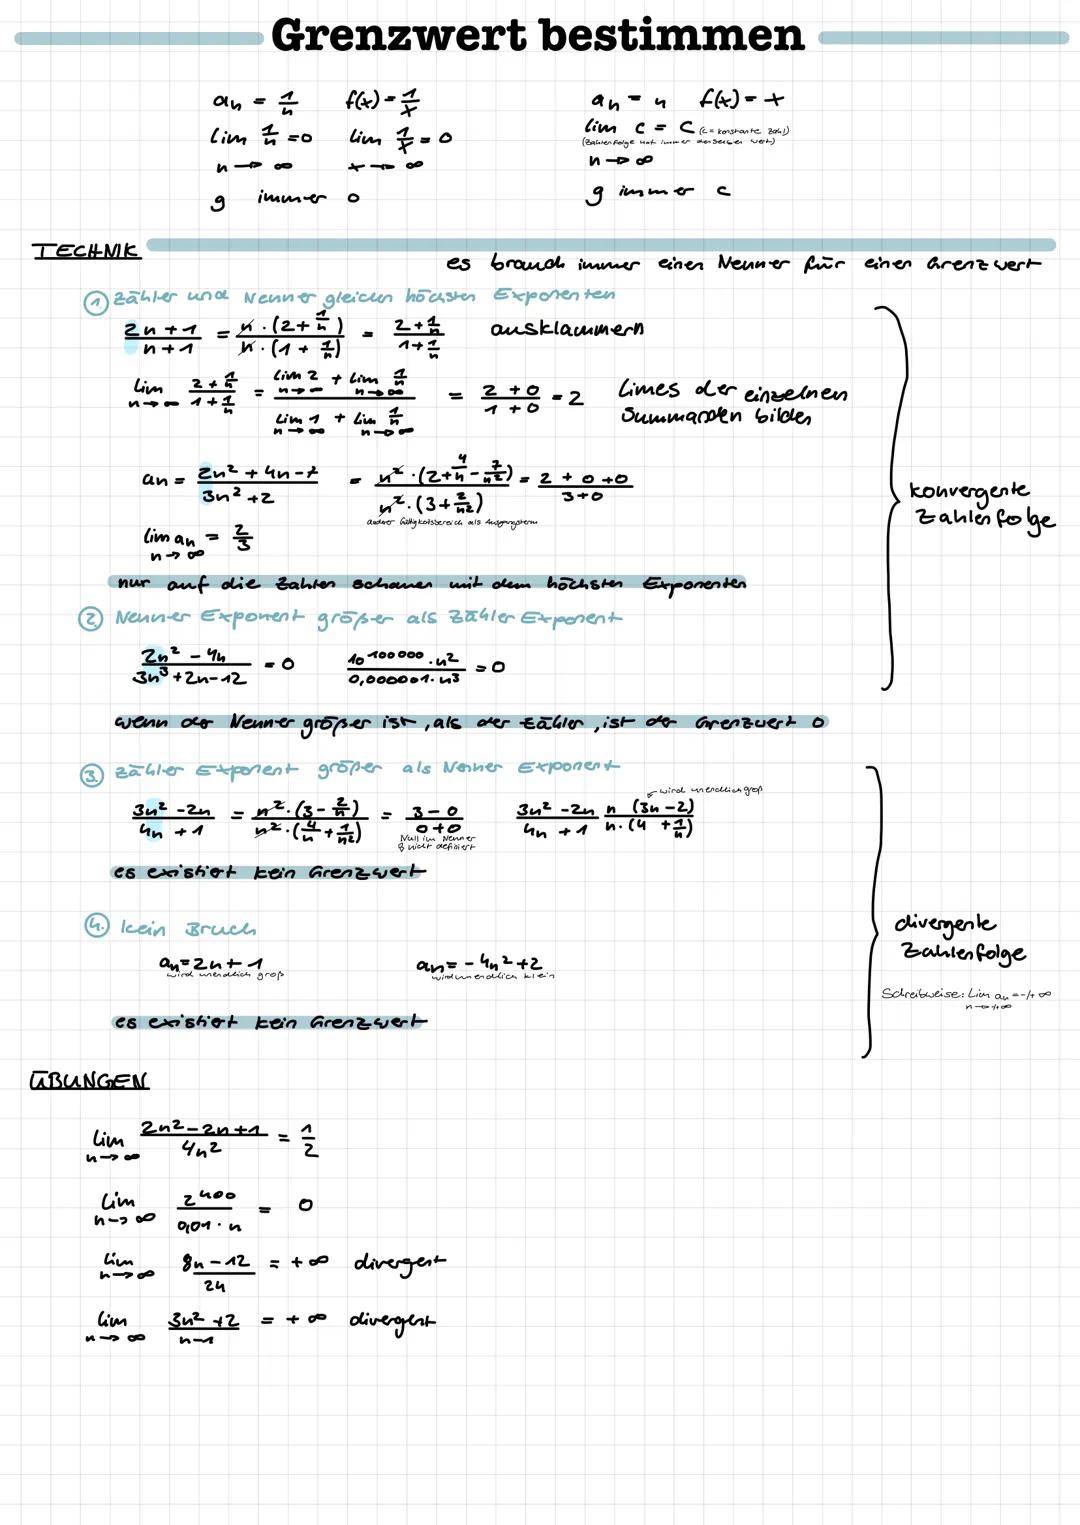 Grenzwert bestimmen
an = 1/n f(x) = 1/x
lim 1/n = 0 lim 1/x = 0
n → ∞ x → ∞
g immer 0
an = n f(x) = x
lim c = c (c = konstante Zahl)
(Zahlenfolge hat immer denselben Wert)
n → ∞
g immer c
TECHNIK
es brauch immer einen Nenner für einen Grenzwert
1 Zähler und Nenner gleichen höchsten Exponenten
2n+1 / n+1 = n·(2+1/n) / n·(1+1/n) = 2+1/n / 1+1/n ausklammern
lim n→∞ 2+1/n / 1+1/n = lim 2 n→∞ + lim 1/n n→∞ / lim 1 n→∞ + lim 1/n n→∞ = 2+0 / 1+0 = 2 Limes der einzelnen
Summanden bilden
an = 2n²+4n-7 / 3n²+2 = n²·(2+4/n-7/n²) / n²·(3+2/n²) = 2+0+0 / 3+0
anderer Gültigkeitsbereich als Ausgangsterm
lim an = 2/3
n→∞
nur auf die Zahlen schauen mit dem höchsten Exponenten
konvergente
Zahlenfolge
2 Nenner Exponent größer als Zähler Exponent
2n²-4n / 3n³+2n-12 = 0 10^100000·n² / 0,000001·n³ = 0
wenn der Nenner größer ist, als der Zähler, ist der Grenzwert 0
3. Zähler Exponent größer als Nenner Exponent
wird unendlich groß
3n²-2n / 4n+1 = n²·(3-2/n) / n²·(4/n+1/n²) = 3-0 / 0+0 3n²-2n / 4n+1 n (3n-2) / n·(4+1/n)
Null im Nenner
nicht definiert
es existiert kein Grenzwert
4. kein Bruch
an = 2n+1 an = -4n²+2
wird unendlich groß wird unendlich klein
es existiert kein Grenzwert
divergente
Zahlenfolge
Schreibweise: lim an = -/+ ∞
ÜBUNGEN
lim n→∞ 2n²-2n+1 / 4n² = 1/2
lim n→∞ 2^400 / 0,01·n = 0
lim n→∞ 8n-12 / 24 = +∞ divergent
lim n→∞ 3n²+2 / n-1 = +∞ divergent